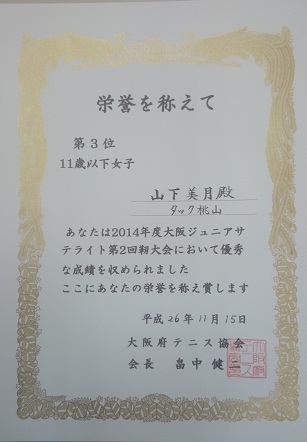 栄誉を称えて
第3位
11歳以下女子
山下美月殿
タック桃山
あなたは2014年度大阪ジュニアサ
テライト第2回靭大会において優秀
な成績を収められました
ここにあなたの栄誉を称え賞します
平成26年11月15日
大阪府テニス協会
会長 畠中健二